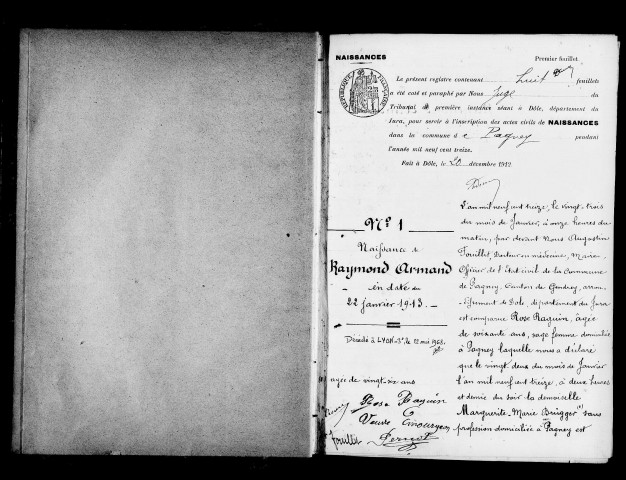 NAISSANCES
Premier feuillet
RÉPUBLIQUE FRANÇAISE
Le présent registre contenant huit feuillets
a été coté et paraphé par Nous Juge du
Tribunal de première instance séant à Dôle, département du
Jura, pour servir à l'inscription des actes civils de NAISSANCES
dans la commune de Pagney pendant
l'année mil neuf cent treize.
Fait à Dôle, le 20 décembre 1912
No 1
Naissance de
Raymond Armand
en date du
22 janvier 1913.
Décédé à LYON-3e, le 12 mai 1968.
L'an mil neuf cent treize, le vingt-trois
du mois de Janvier, à onze heures du
matin, par devant Nous Augustin
Fouillet, Docteur en médecine, Maire
Officier de l'Etat civil de la Commune
de Pagney, Canton de Gendrey, arron-
dissement de Dole, département du Jura
est comparue Rose Raguin, âgée
de soixante ans, sage femme domiciliée
à Pagney laquelle nous a déclaré
que le vingt deux du mois de Janvier
l'an mil neuf cent treize, à deux heures
et demie du soir la demoiselle
Marguerite-Marie Brügger (1) sans
profession domiciliée à Pagney est
âgée de vingt-six ans
Rose Raguin
Veuve
Fouillet